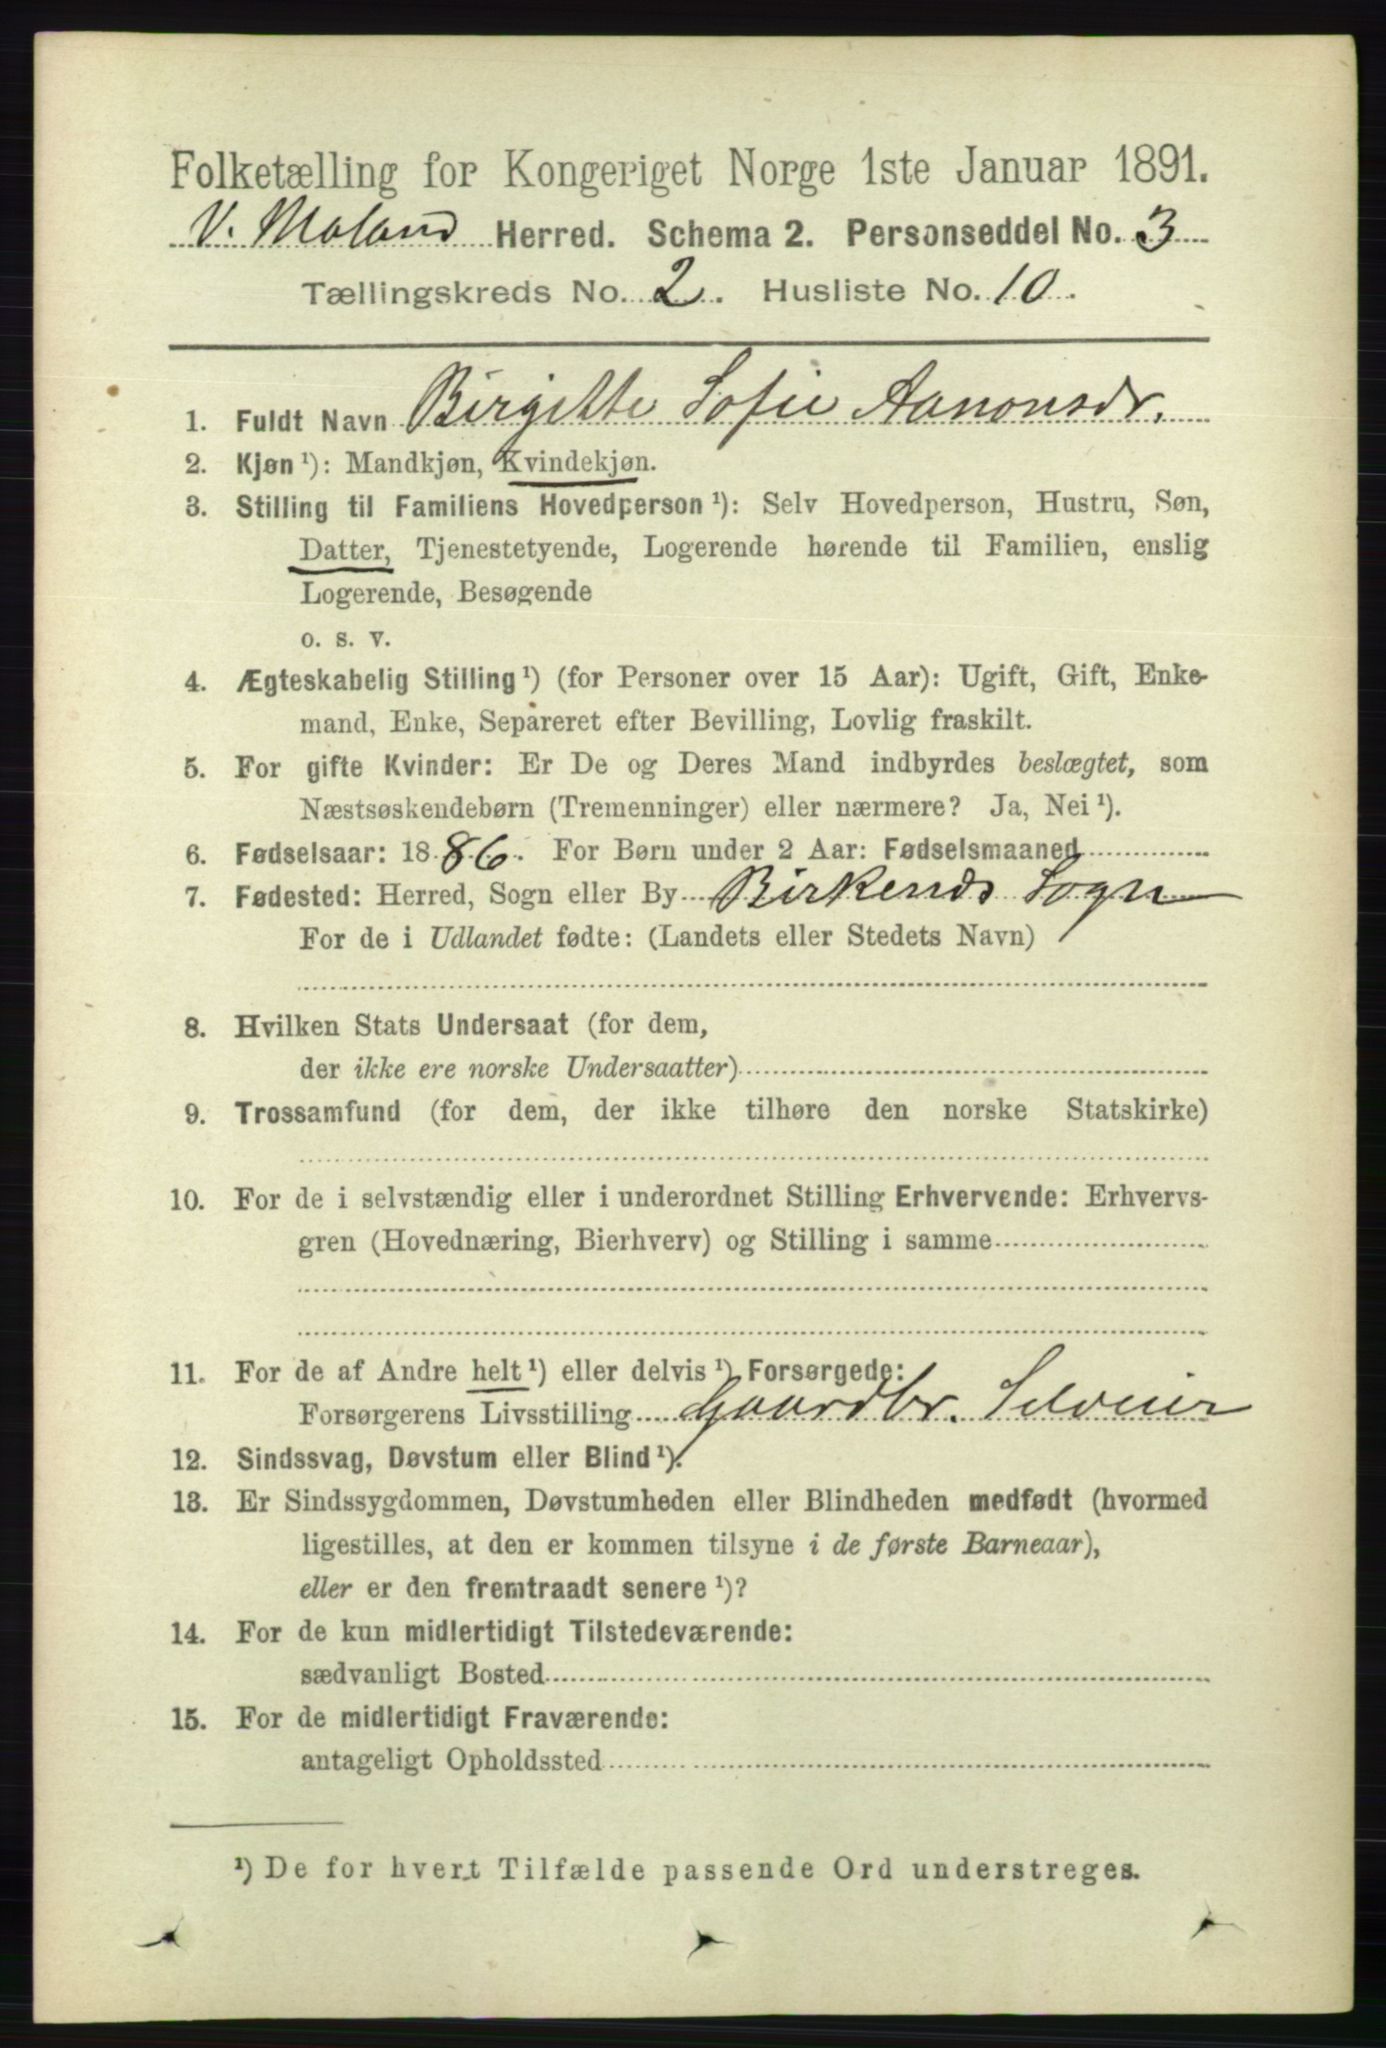 Folketælling for Kongeriget Norge 1ste Januar 1891.
V. Moland Herred. Schema 2. Personseddel No. 3
Tællingskreds No. 2. Husliste No. 10.
1. Fuldt Navn Birgitte Sofie Aanonsdr.
2. Kjøn ¹): Mandkjøn, Kvindekjøn.
3. Stilling til Familiens Hovedperson ¹): Selv Hovedperson, Hustru, Søn,
Datter, Tjenestetyende, Logerende hørende til Familien, enslig
Logerende, Besøgende
o. s. v.
4. Ægteskabelig Stilling ¹) (for Personer over 15 Aar): Ugift, Gift, Enke-
mand, Enke, Separeret efter Bevilling, Lovlig fraskilt.
5. For gifte Kvinder: Er De og Deres Mand indbyrdes beslægtet, som
Næstsøskendebørn (Tremenninger) eller nærmere? Ja, Nei ¹).
6. Fødselsaar: 1886. For Børn under 2 Aar: Fødselsmaaned
7. Fødested: Herred, Sogn eller By Birkenes Sogn
For de i Udlandet fødte: (Landets eller Stedets Navn)
8. Hvilken Stats Undersaat (for dem,
der ikke ere norske Undersaatter)
9. Trossamfund (for dem, der ikke tilhøre den norske Statskirke)
10. For de i selvstændig eller i underordnet Stilling Erhvervende: Erhvervs-
gren (Hovednæring, Bierhverv) og Stilling i samme
11. For de af Andre helt ¹) eller delvis ¹) Forsørgede:
Forsørgerens Livsstilling Gaardbr. Selveier
12. Sindssvag, Døvstum eller Blind ¹).
13. Er Sindssygdommen, Døvstumheden eller Blindheden medfødt (hvormed
ligestilles, at den er kommen tilsyne i de første Barneaar),
eller er den fremtraadt senere ¹)?
14. For de kun midlertidigt Tilstedeværende:
sædvanligt Bosted
15. For de midlertidigt Fraværende:
antageligt Opholdssted
¹) De for hvert Tilfælde passende Ord understreges.